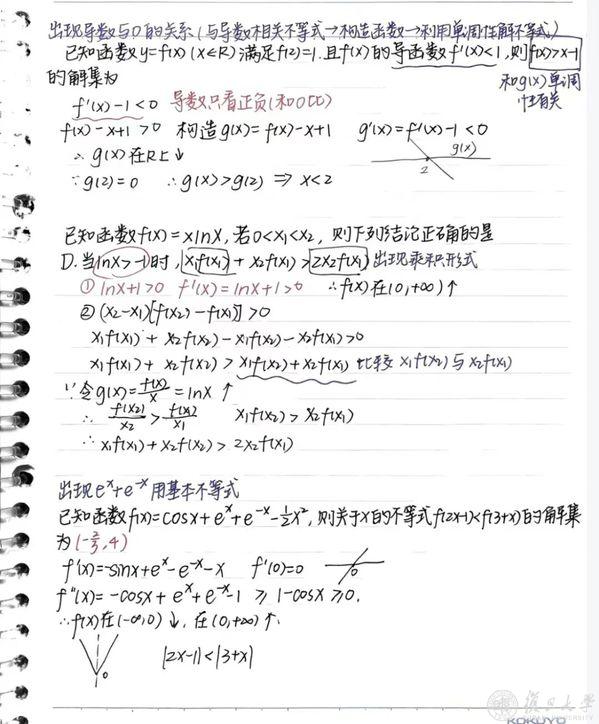 出现导数与0的关系(与导数相关不等式→构造函数→利用单调性解不等式)
已知函数y=f(x)(x∈R)满足f(2)=1.且f(x)的导函数f'(x)<1,则f(x)>x-1
的解集为
和g(x)单调
性有关
f'(x)-1<0 导数只看正负(和0比)
f(x)-x+1>0 构造g(x)=f(x)-x+1 g'(x)=f'(x)-1<0
∴g(x)在R上↓
g(x)
2
∵g(2)=0 ∴g(x)>g(2) ⇒ x<2
已知函数f(x)=xlnx,若0<x₁<x₂,则下列结论正确的是
D.当lnx>-1时,x₁f(x₁)+x₂f(x₂)>2x₂f(x₁) 出现乘积形式
①lnx+1>0 f'(x)=lnx+1>0 ∴f(x)在(0,+∞)↑
②(x₂-x₁)[f(x₂)-f(x₁)]>0
x₁f(x₁)+x₂f(x₂)-x₁f(x₂)-x₂f(x₁)>0
x₁f(x₁)+x₂f(x₂)>x₁f(x₂)+x₂f(x₁) 比较x₁f(x₂)与x₂f(x₁)
∵令g(x)=f(x)/x=lnx ↑
∴f(x₂)/x₂>f(x₁)/x₁ x₁f(x₂)>x₂f(x₁)
∴x₁f(x₁)+x₂f(x₂)>2x₂f(x₁)
出现eˣ+e⁻ˣ用基本不等式
已知函数f(x)=cosx+eˣ+e⁻ˣ-½x²,则关于x的不等式f(2x-1)<f(3+x)的解集
为(-⅔,4)
f'(x)=-sinx+eˣ-e⁻ˣ-x f'(0)=0
0
f''(x)=-cosx+eˣ+e⁻ˣ-1≥1-cosx≥0.
∴f(x)在(-∞,0)↓,在(0,+∞)↑.
0
|2x-1|<|3+x|
復旦大學
KOKUYO